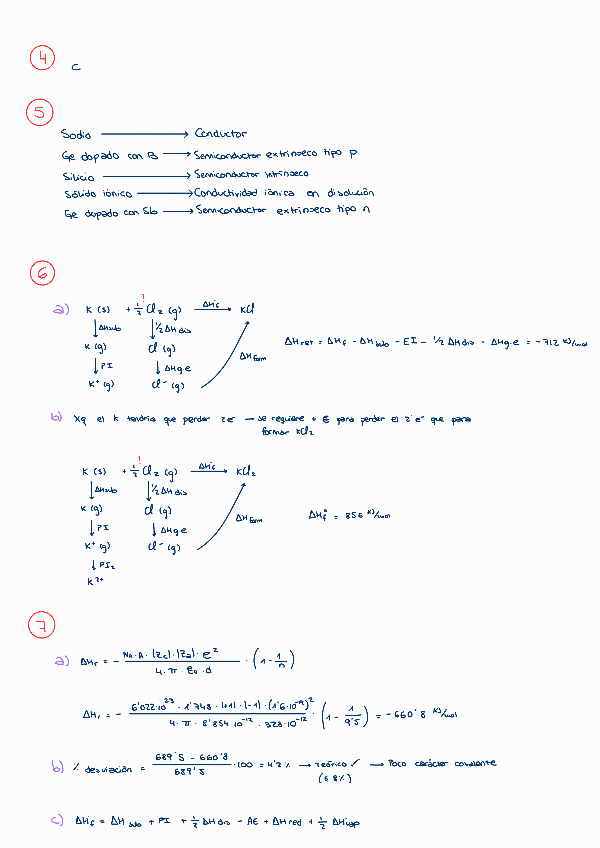 4
C
5
Sodio → Conductor
Ge dopado con B → Semiconductor extrínseco tipo p
Silicio → Semiconductor intrínseco
Sólido iónico → Conductividad iónica en disolución
Ge dopado con Sb → Semiconductor extrínseco tipo n
6
a) K (s) + 1/2 Cl2 (g) → ΔHºf KCl
↓ ΔHsub ↓ 1/2 ΔH dis
K (g) Cl (g) ΔHret = ΔHf - ΔHsub - EI - 1/2 ΔH dis - ΔHg.e = -712 KJ/mol
↓ PI ↓ ΔHg.e ΔHform
K+ (g) Cl- (g)
b) Xq el K tendría que perder 2e- → se requiere + E para perder el 2º e- que para
formar KCl2
K (s) + 1/2 Cl2 (g) → ΔHºf KCl2
↓ ΔHsub ↓ 1/2 ΔH dis
K (g) Cl (g)
↓ PI ↓ ΔHg.e ΔHform ΔHºf = 856 KJ/mol
K+ (g) Cl- (g)
↓ PI2
K2+
7
a) ΔHr = - NA·A·|Zc|·|Za|·e² / 4·π·ε0·d · (1 - 1/n)
ΔHr = - 6'022·10^23 · 1'748 · |+1| · |-1| · (1'6·10^-19)² / 4·π·8'854·10^-12 · 328·10^-12 · (1 - 1/9'5) = -660'8 KJ/mol
b) % desviación = 689'5 - 660'8 / 689'5 · 100 = 4'2 % → teórico ✓ → Poco carácter covalente
c) ΔHf = ΔH sub + PI + 1/2 ΔH dis - AE + ΔH red + 1/2 ΔH